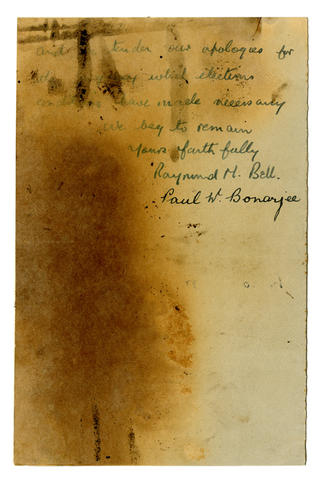 and tender our apologies for
which elections
have made necessary
we beg to remain
Yours faithfully
Raymond M. Bell.
Paul W. Bonarjee